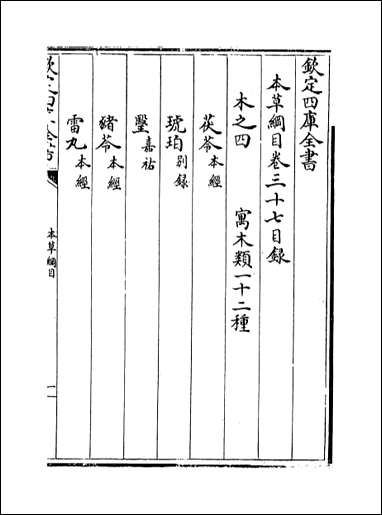 欽定四庫全書
本草綱目卷三十七目録
木之四 寓木類一十二種
茯苓本經
琥珀别録
瑿嘉祐
豬苓本經
雷丸本經
本草綱目